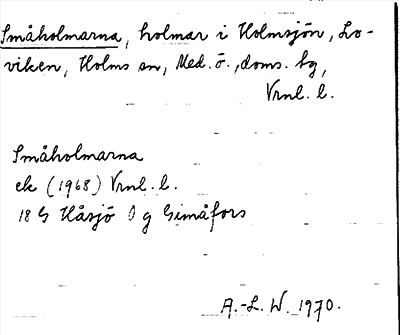 Småholmarna, holmar i Holmsjön, Lo-
viken, Holms sn, Med. ö., doms. bg,
Vrnl. l.
Småholmarna
ek (1968) Vrnl. l.
18 G Håsjö O g Gimåfors
A.-L. W. 1970.